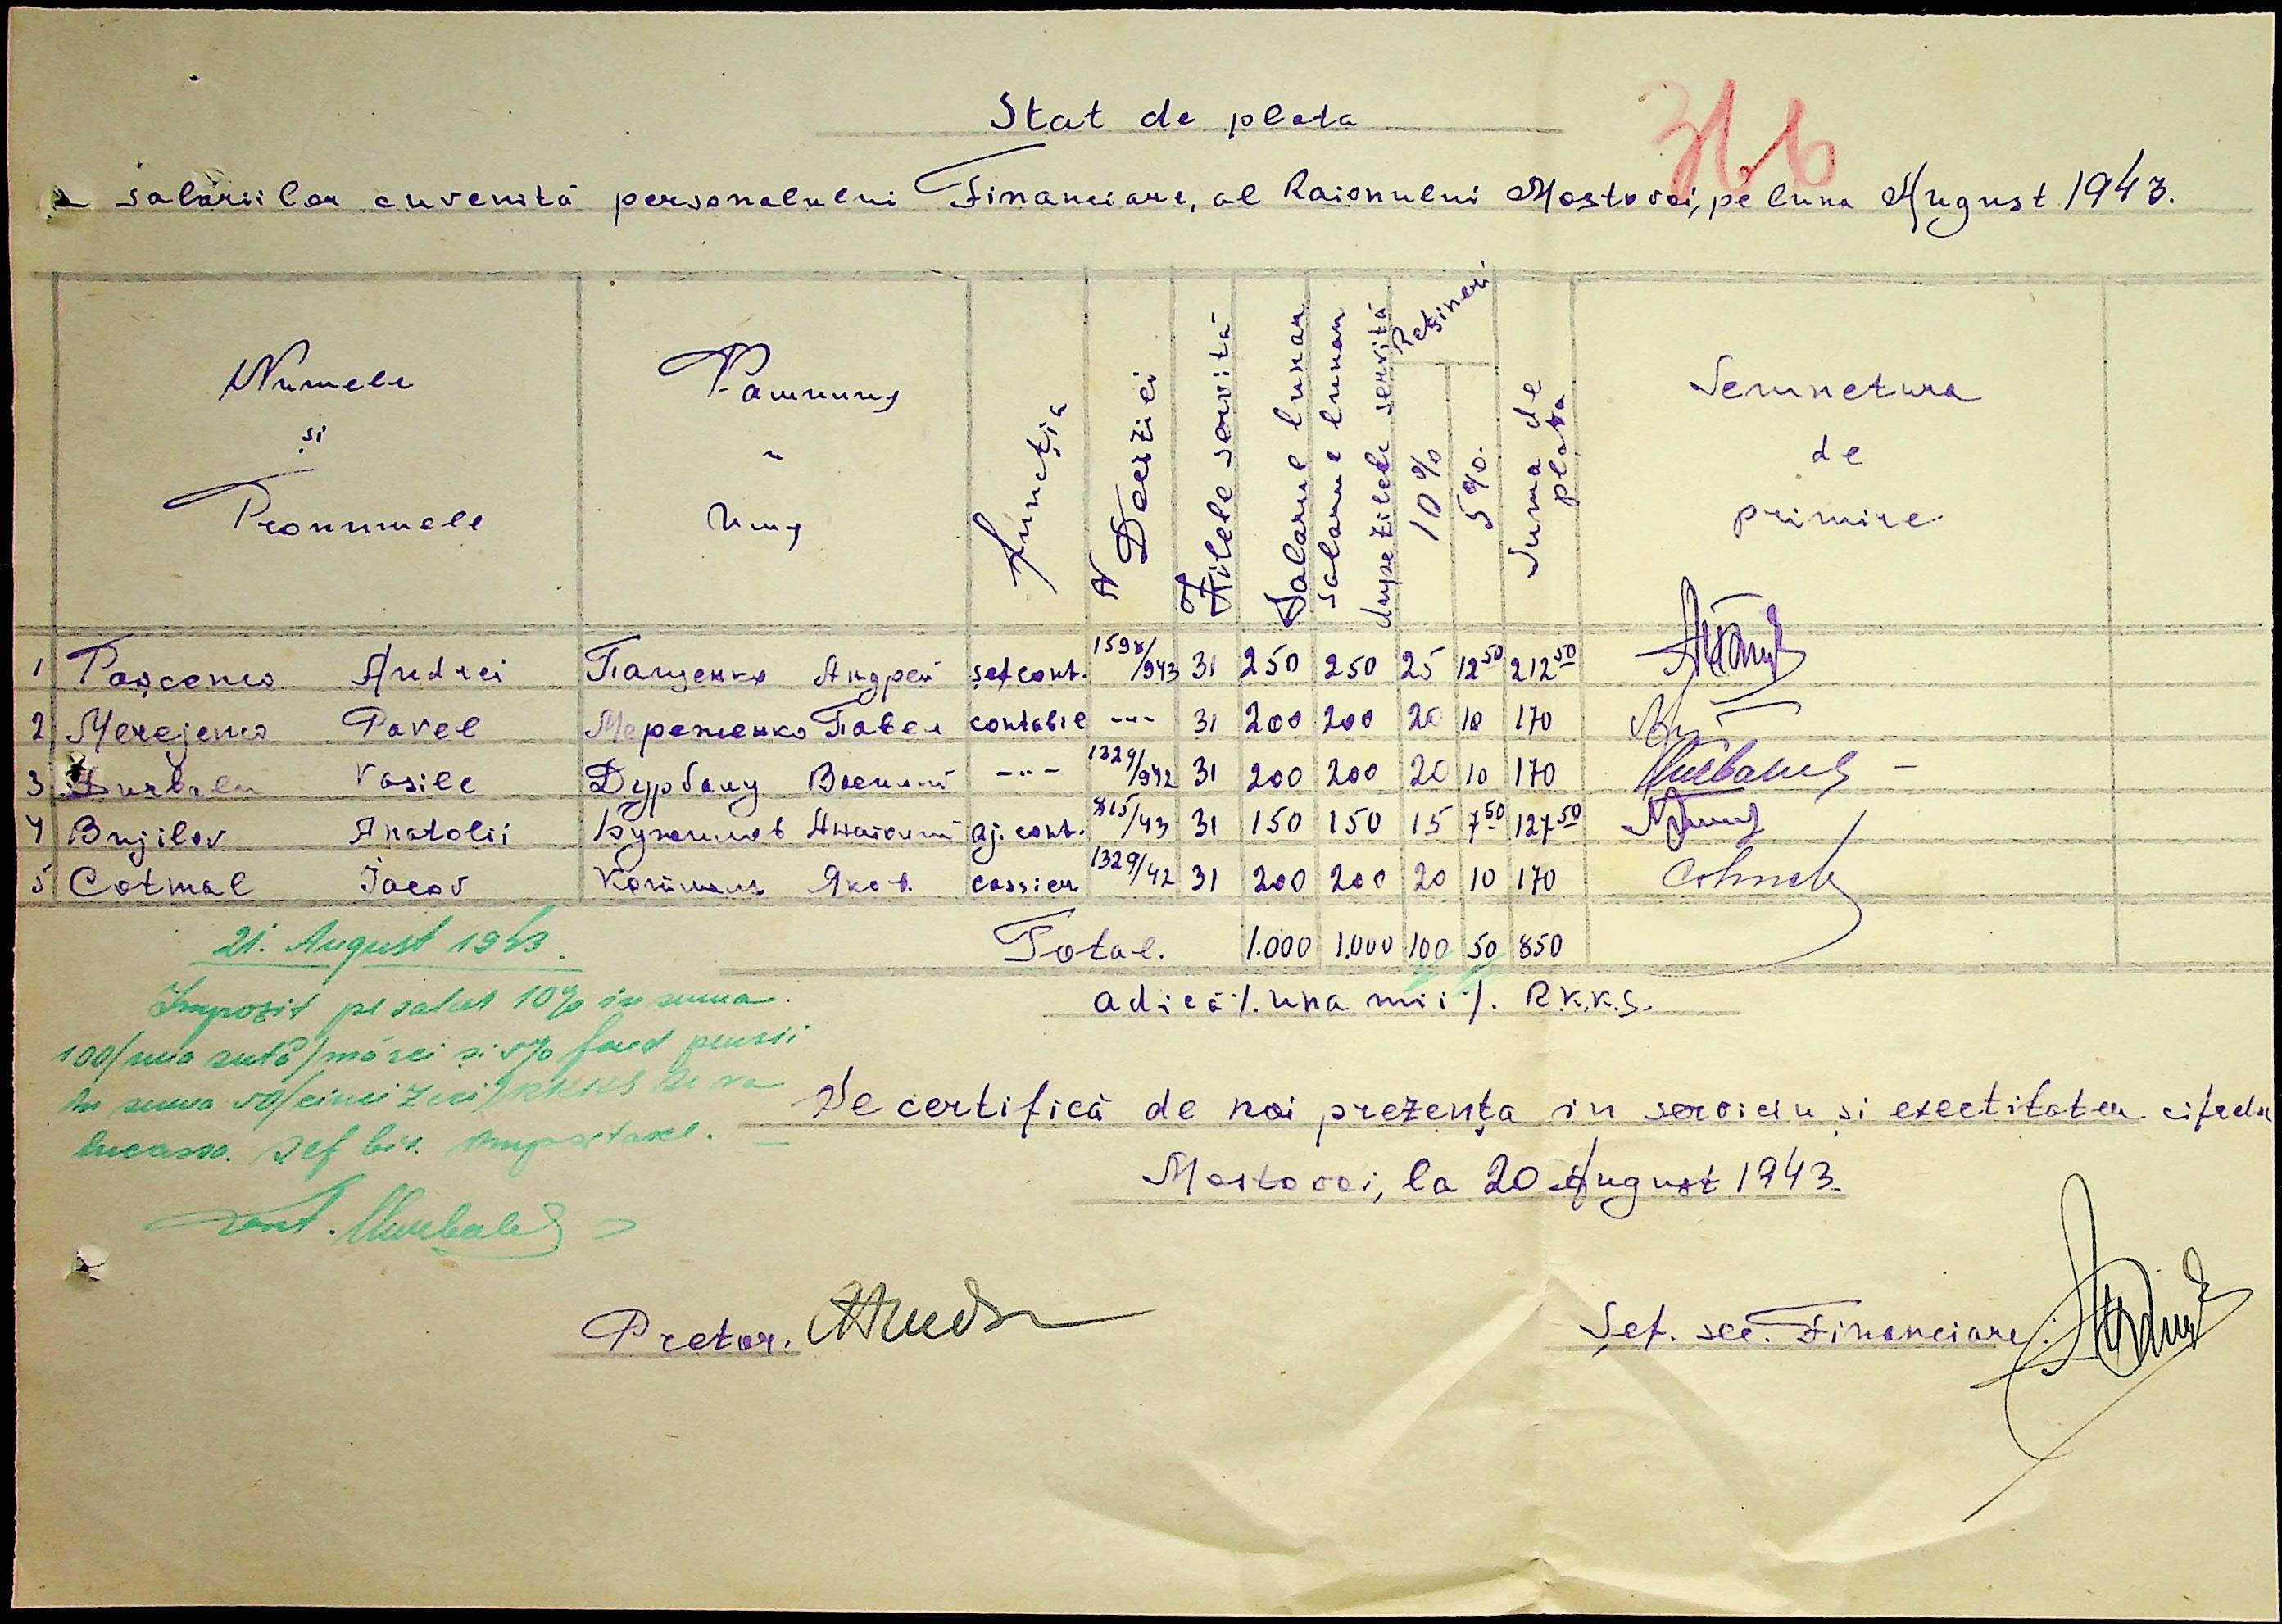 Stat de plata
316
a salariilor cuvenită personalului Financiare, al Raionului Mostovoi, pe luna August 1943.
Numele și Pronumele
Фамилия и Имя
Funcția
N Deciziei
Zilele servită
Salarul lunar
Salarul lunar dupe zilele servită
Rețineri
10%
5%.
Suma de plata
Semnetura de primire
1 Pașcenco Andrei Пащенко Андрей șef cont. 1598/943 31 250 250 25 12 50 212 50
2 Merejenco Pavel Мереженко Павел contabil --- 31 200 200 20 10 170
3 Durbalu Vasile Дурбалу Василий -"- 1329/942 31 200 200 20 10 170
4 Bujilov Anatolii Бужилов Анатолий aj. cont. 815/43 31 150 150 15 7 50 127 50
5 Cotmal Iacov Котмаль Яков. cassier 1329/42 31 200 200 20 10 170
Total. 1.000 1.000 100 50 850
adică /. una mii /. R.K.K.S.
21. August 1943.
Impozit pe salar 10% in suma
100/una sută/mărci și 5% fond pensii
in suma 50/cinci zeci/ RKKS se va
incassa. Șef bir.
Cont.
Se certifică de noi prezența in serviciu și exectitatea cifrelor
Mostovoi, la 20 August 1943.
Pretor.
Șef. sec. Financiare.